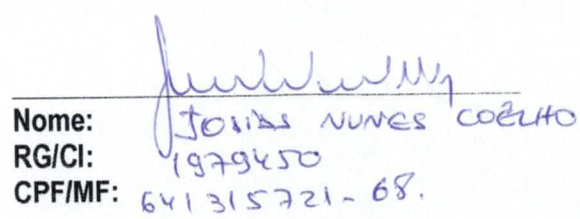 Nome: JOSIAS NUNES COELHO
RG/CI: 1979450
CPF/MF: 641315721-68.